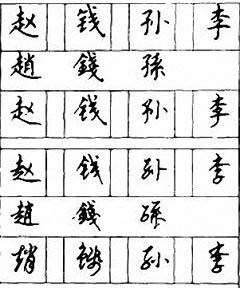 赵 钱 孙 李
趙 錢 孫
赵 钱 孙 李
赵 钱 孙 李
趙 錢 孫
趙 錢 孙 李